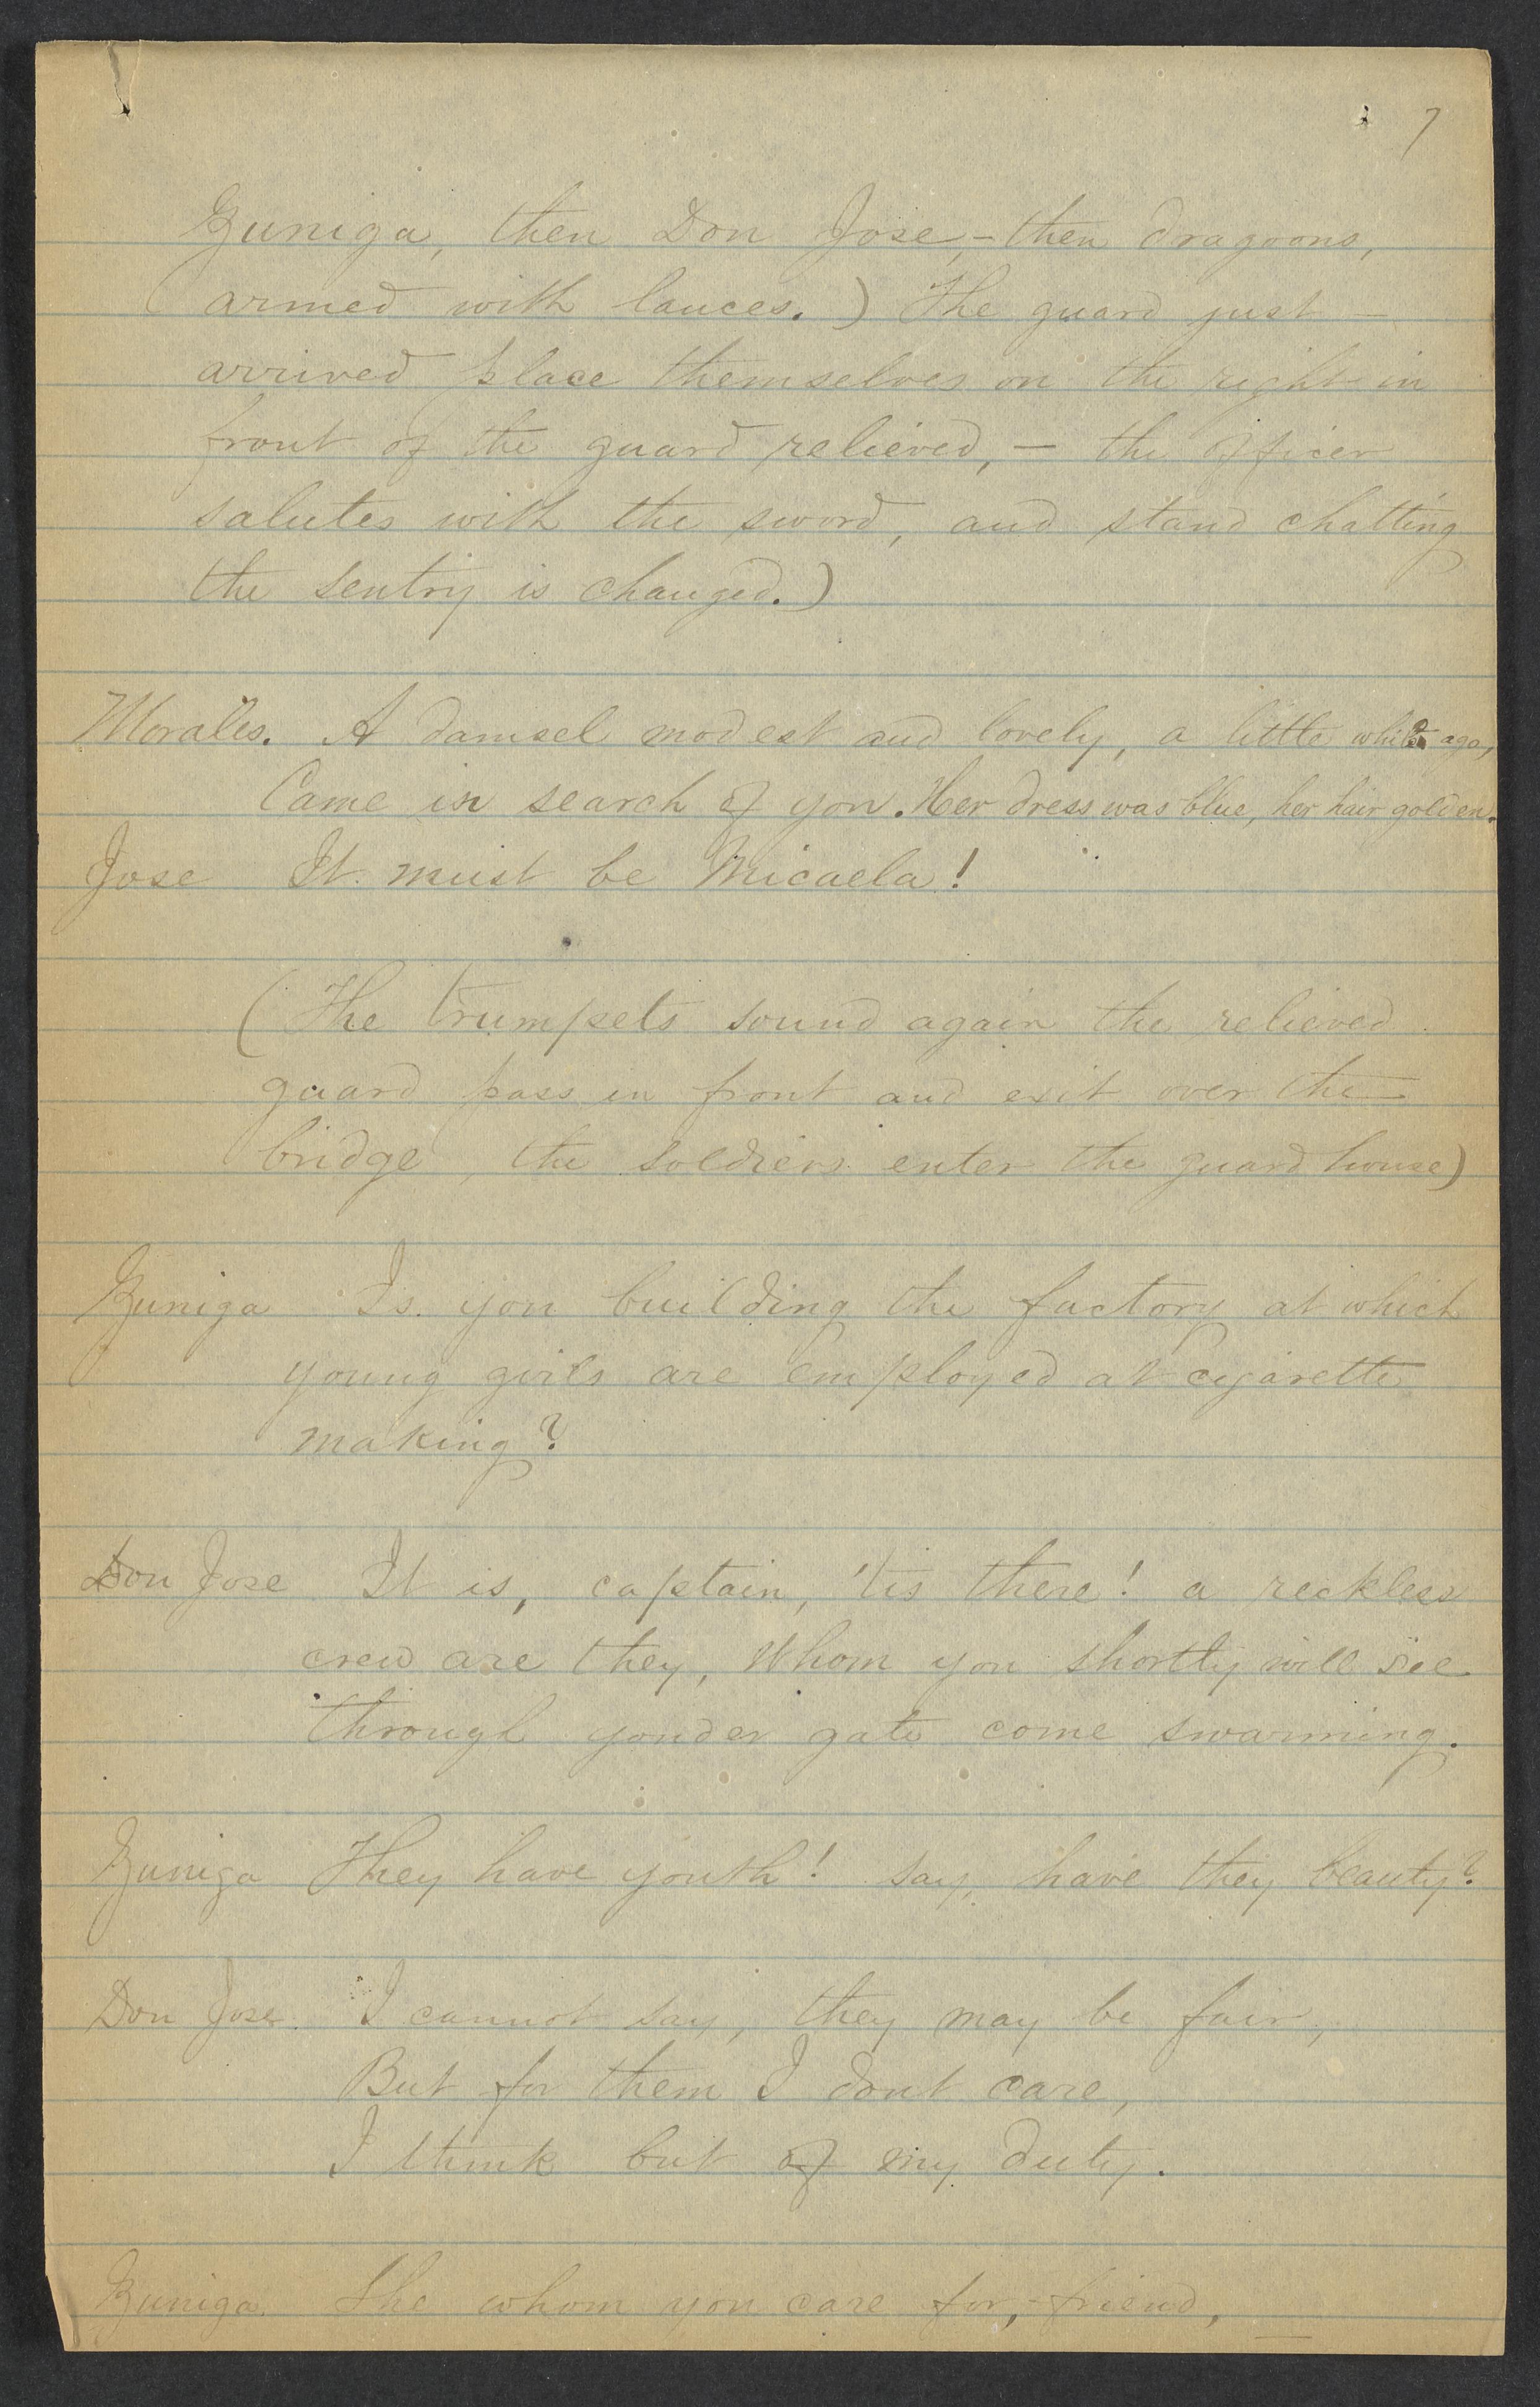 7
Zuniga, then Don Jose, - then dragoons,
(armed with lances.) The guard just -
arrived place themselves on the right in
front of the guard relieved, - the officer
salutes with the sword, and stand chatting
the sentry is changed.)
Morales. A damsel modest and lovely, a little while ago,
Came in search of you. Her dress was blue, her hair golden.
Jose It must be Micaela!
(The trumpets sound again the relieved
guard pass in front and exit over the
bridge, the soldiers enter the guard house)
Zuniga Is yon building the factory at which
young girls are employed at cigarette
making?
Don Jose It is, captain, 'tis there! a reckless
crew are they, Whom you shortly will see
through yonder gate come swarming.
Zuniga They have youth! say, have they beauty?
Don Jose. I cannot say, they may be fair,
But for them I dont care,
I think but of my duty.
Zuniga. She whom you care for, - friend,